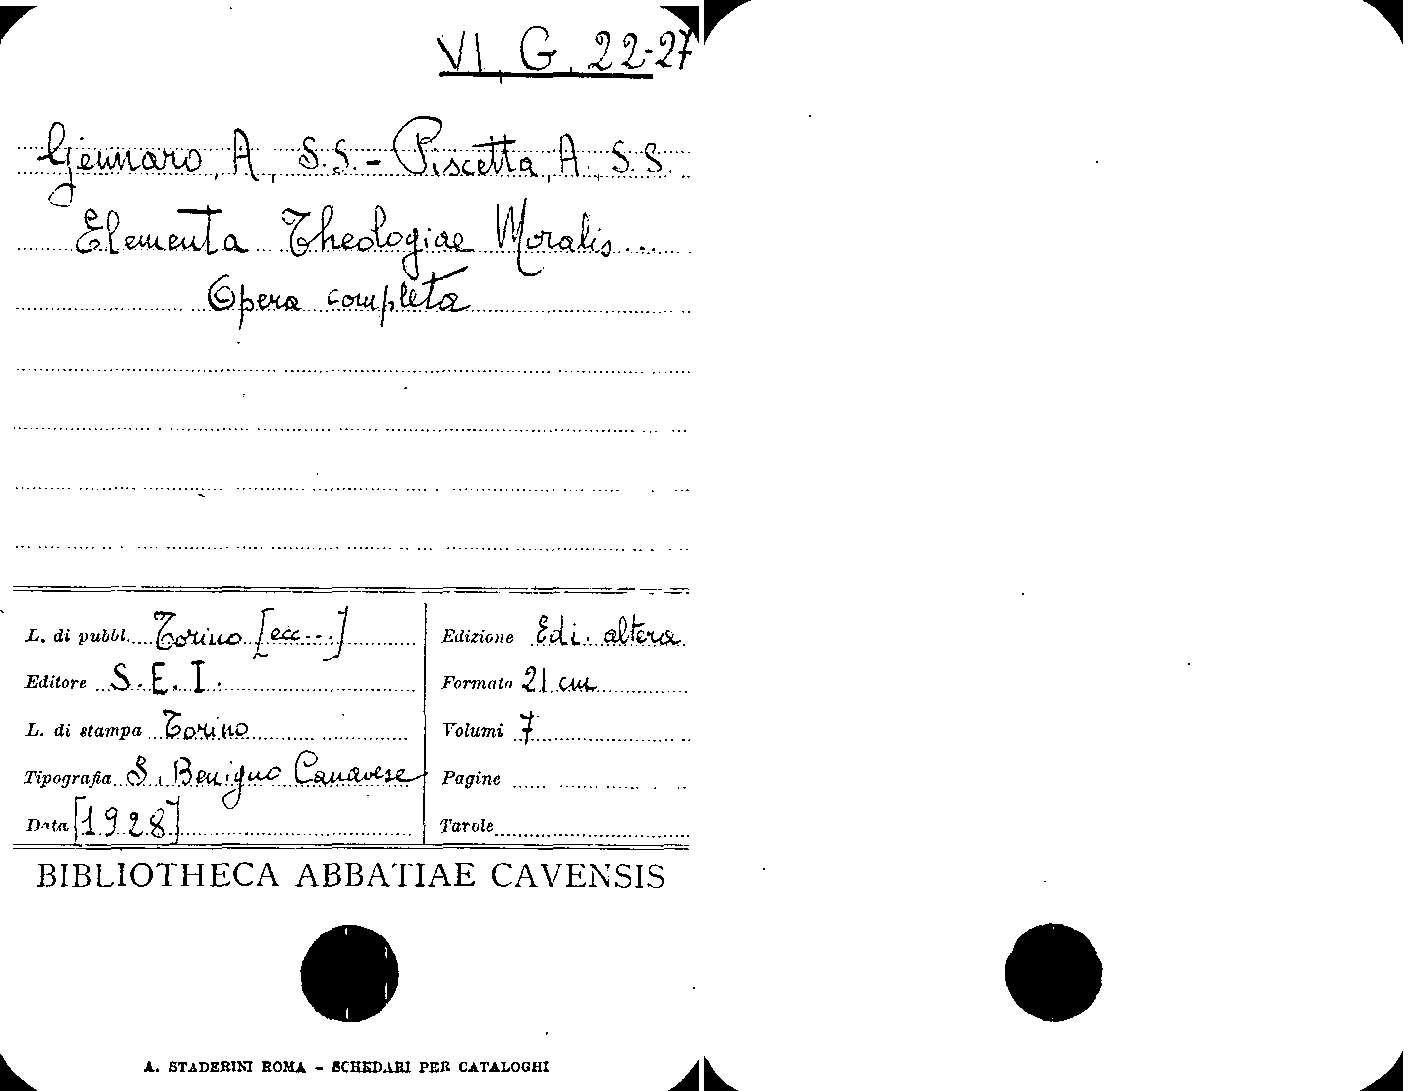 VI, G, 22-27
Gennaro, A, S.S. - Piscetta, A., S.S.
Elementa Theologiae Moralis...
Opera completa
L. di pubbl. Torino [ecc...]
Editore S.E.I.
L. di stampa Torino
Tipografia S. Benigno Canavese
Data [1928]
Edizione Edi. altera
Formato 21 cm
Volumi 7
Pagine
Tavole
BIBLIOTHECA ABBATIAE CAVENSIS
A. STADERINI ROMA - SCHEDARI PER CATALOGHI